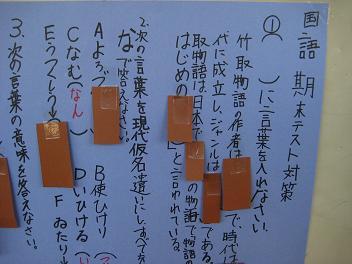 国語 期末テスト対策
① ( )に言葉を入れなさい。
竹取物語の作者は で、時代は
代に成立し、ジャンルは である。
取物語は日本で の物語で「物語の
はじめの 」と言われている。
2、次の言葉を現代仮名遣いにし、すべてを
なで答えなさい。
Aよろづ B使ひけり
Cなむ(なん) Dいひける(い
Eうつくしう Fゐたり
3、次の言葉の意味を答えなさい。